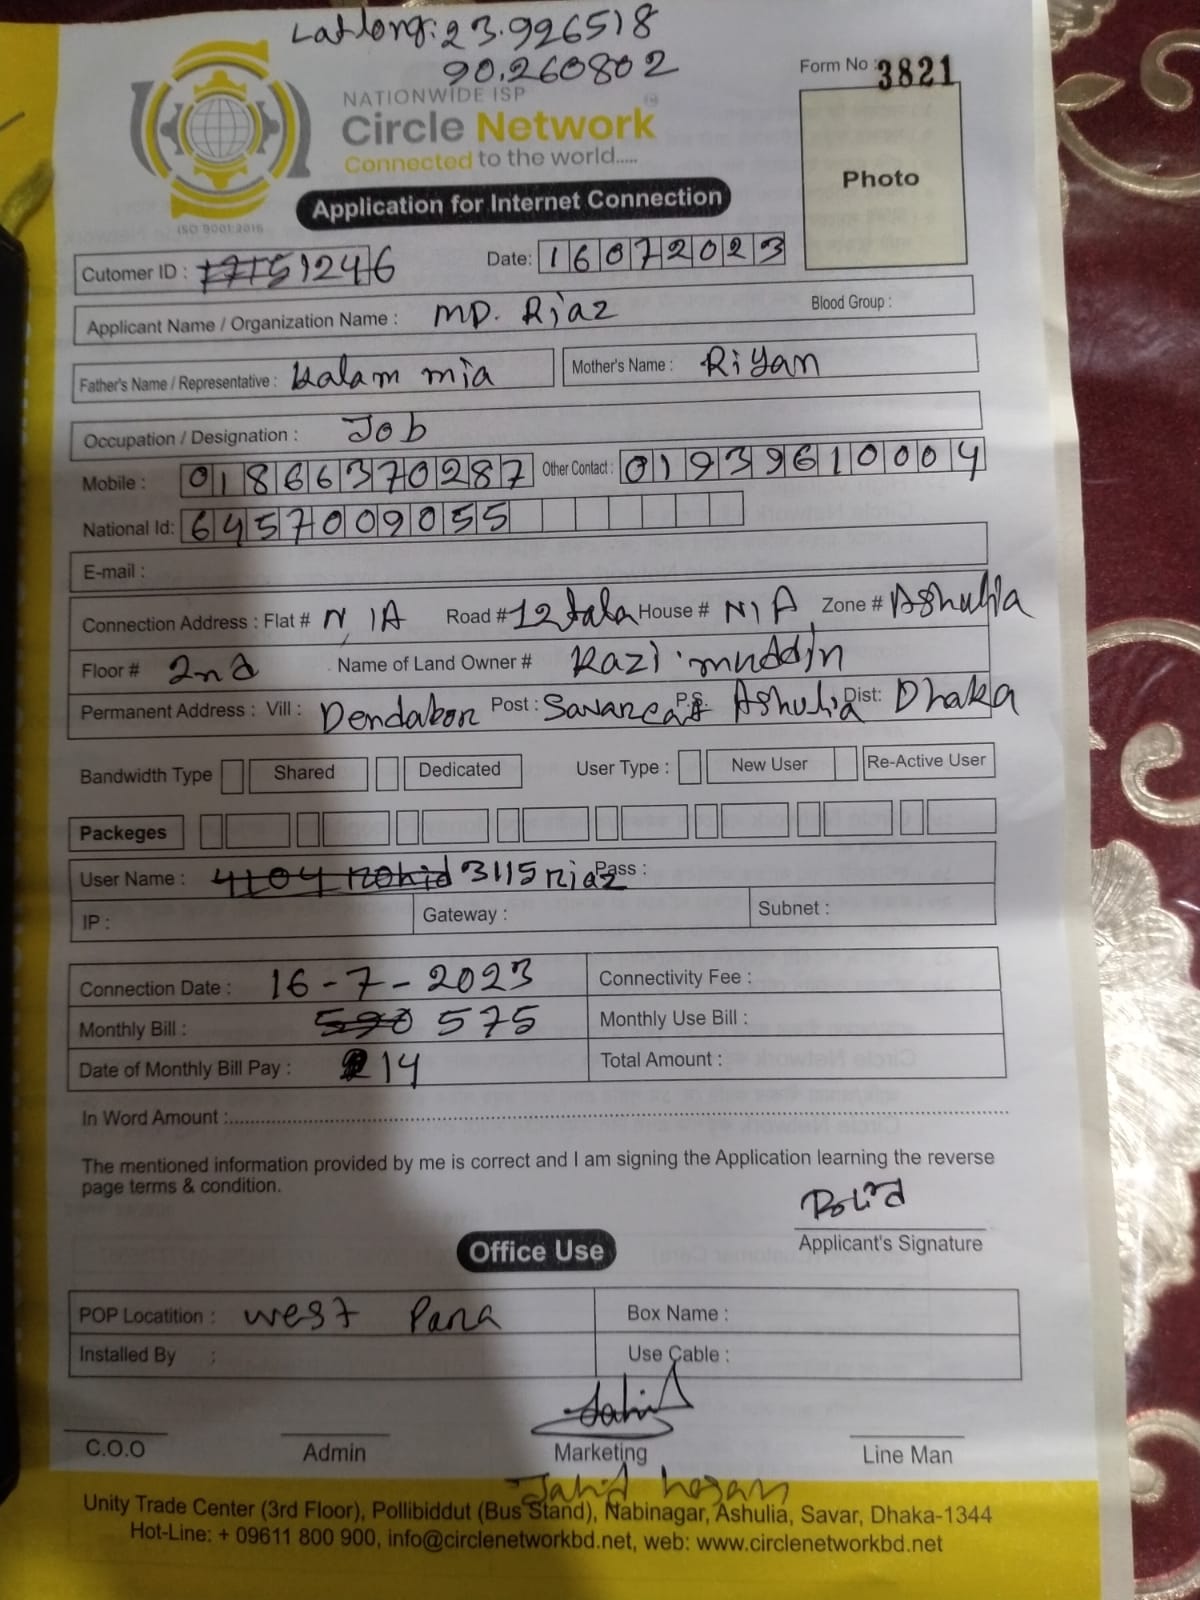 Latlong: 23.926518
90.260802
Form No : 3821
NATIONWIDE ISP
Circle Network
Connected to the world.....
Photo
Application for Internet Connection
ISO 9001:2015
Cutomer ID : 51246 Date: 16072023
Applicant Name / Organization Name : MD. Riaz Blood Group :
Father's Name / Representative : Kalam mia Mother's Name : Riyan
Occupation / Designation : Job
Mobile : 01866370287 Other Contact : 01939610004
National Id: 6457009055
E-mail :
Connection Address : Flat # N/A Road # 12 tala House # N/A Zone # Ashulia
Floor # 2nd Name of Land Owner # Kazi muddin
Permanent Address : Vill : Dendabor Post : P.S. Ashulia Dist: Dhaka
Bandwidth Type Shared Dedicated User Type : New User Re-Active User
Packeges
User Name : 4104 Rohid 3115 Riaz Pass :
IP : Gateway : Subnet :
Connection Date : 16-7-2023 Connectivity Fee :
Monthly Bill : 590 575 Monthly Use Bill :
Date of Monthly Bill Pay : 14 Total Amount :
In Word Amount :
The mentioned information provided by me is correct and I am signing the Application learning the reverse
page terms & condition.
Applicant's Signature
Office Use
POP Locatition : West Para Box Name :
Installed By : Use Cable :
Jahid
C.O.O Admin Marketing Line Man
Jahid hasan
Unity Trade Center (3rd Floor), Pollibiddut (Bus Stand), Nabinagar, Ashulia, Savar, Dhaka-1344
Hot-Line: + 09611 800 900, info@circlenetworkbd.net, web: www.circlenetworkbd.net